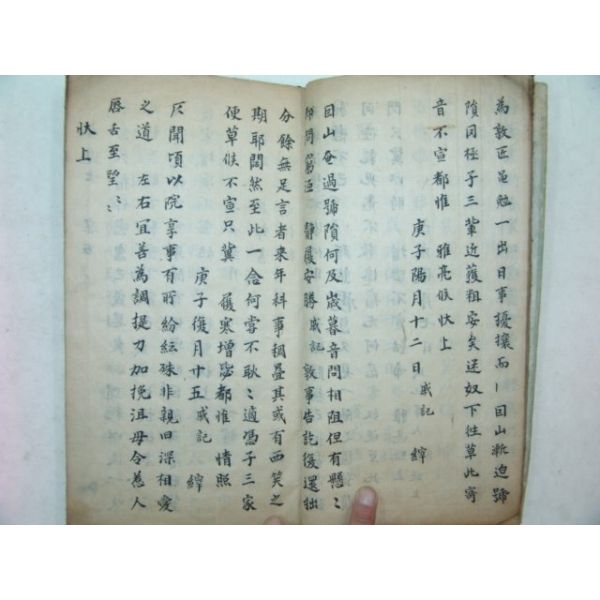 爲敦匠黽勉一出日事擾攘而 回山漸迫號
隕罔極子三輩近獲粗安矣送奴下往草此寄
音不宣都惟 雅亮候狀上
庚子陽月十二日 戚記 緯
回山 過號隕何及歲暮音問相阻但有懸〻
卽問 靜履安勝戚記敦事告訖後還拙
分餘無足言者來年科事稠疊其或有西笑之
期耶闊然至此一念何嘗不耿〻適憑子三家
便草候不宣只冀 履寒增毖都惟 情照
庚子復月十五 戚記 緯
仄聞頃以院享事有所紛紜殊非親回深相愛
之道 左右宜善爲調提力加挽洱毋令惹人
唇舌至望〻
狀上